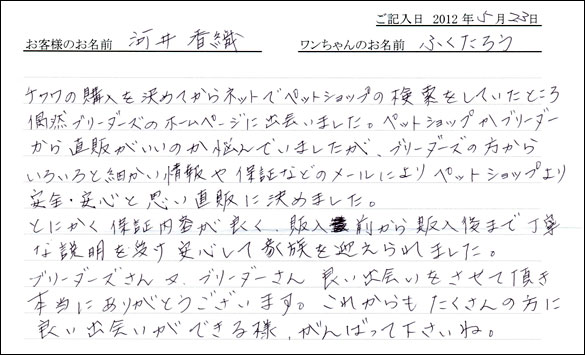 ご記入日 2012年5月23日
お客様のお名前 河井香織 ワンちゃんのお名前 ふくたろう
チワワの購入を決めてからネットでペットショップの検索をしていたところ
偶然ブリーダーズのホームページに出会いました。ペットショップかブリーダー
から直販がいいのか悩んでいましたが、ブリーダーズの方から
いろいろと細かい情報や保証などのメールによりペットショップより
安全・安心と思い直販に決めました。
とにかく保証内容が良く、販入前から販入後まで丁寧
な説明を受け安心して家族を迎えられました。
ブリーダーズさん又、ブリーダーさん良い出会いをさせて頂き
本当にありがとうございます。これからもたくさんの方に
良い出会いができる様、がんばって下さいね。